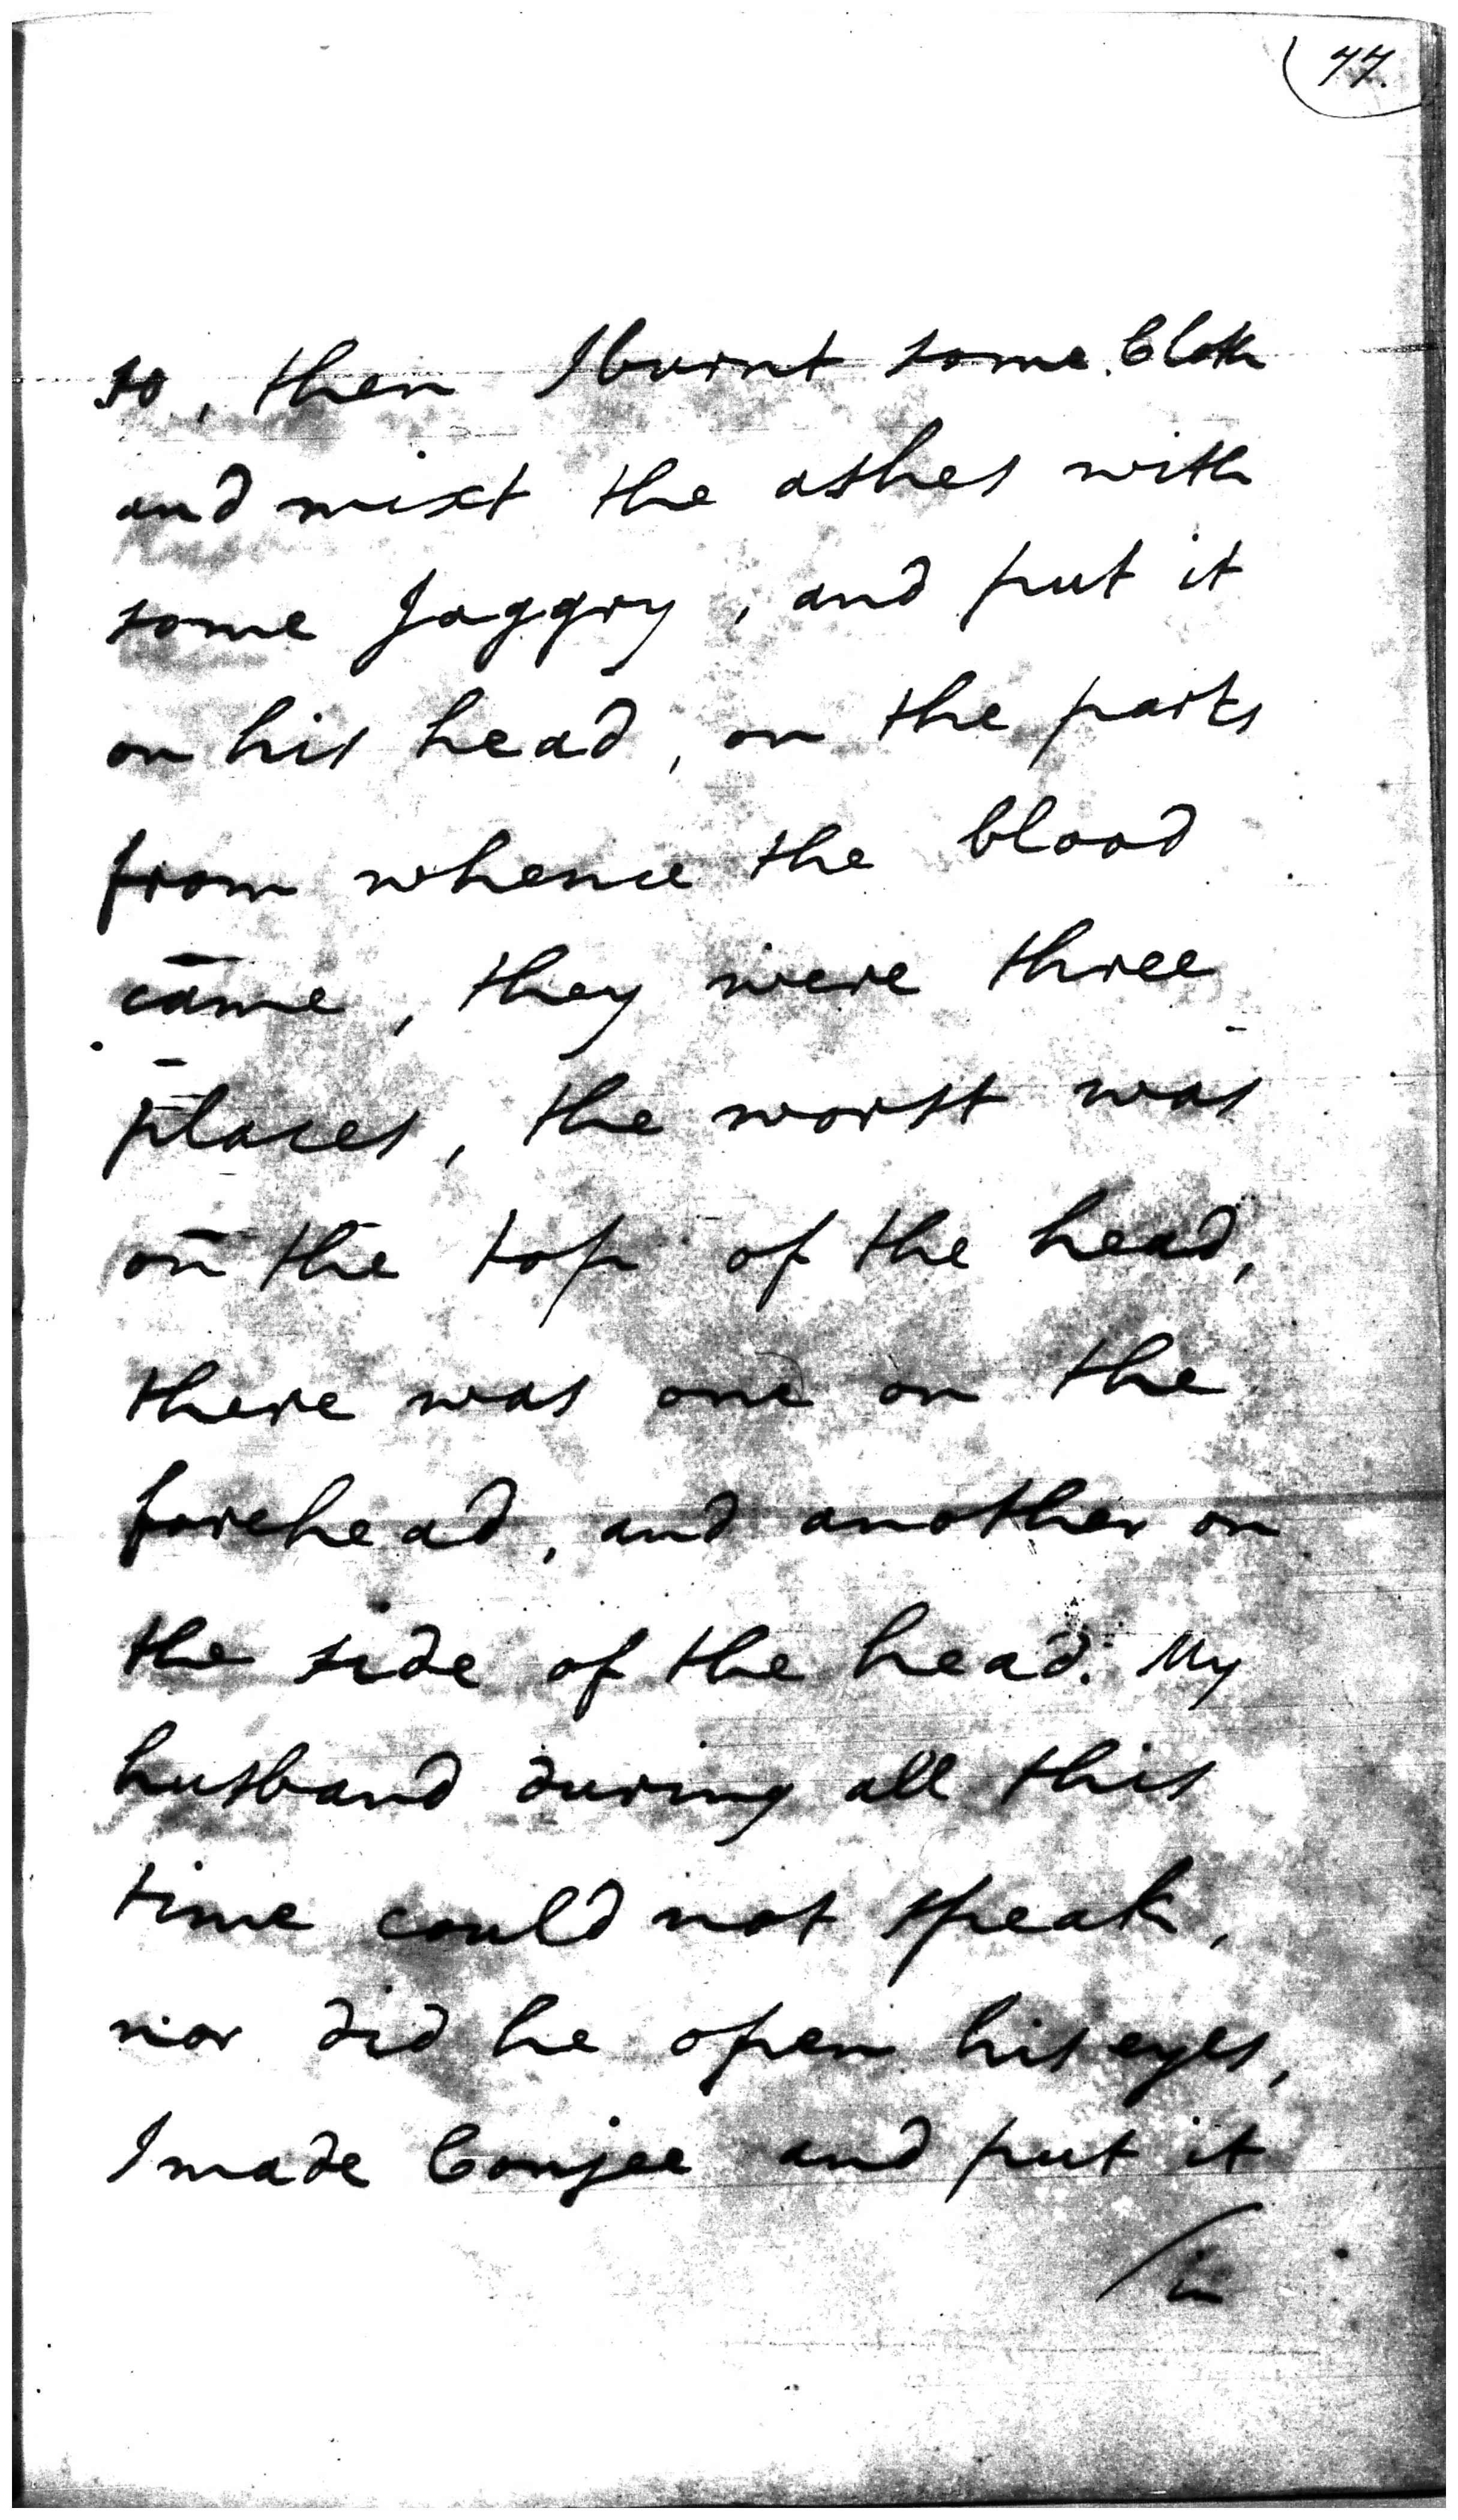 77.
so, then I burnt some Cloth
and mixt the ashes with
some Jaggry, and put it
on his head, on the parts
from whence the blood
came, they were three
places, the worst was
on the top of the head,
there was one on the
forehead, and another on
the side of the head. My
husband during all this
time could not speak,
nor did he open his eyes,
I made Conjee and put it
/in